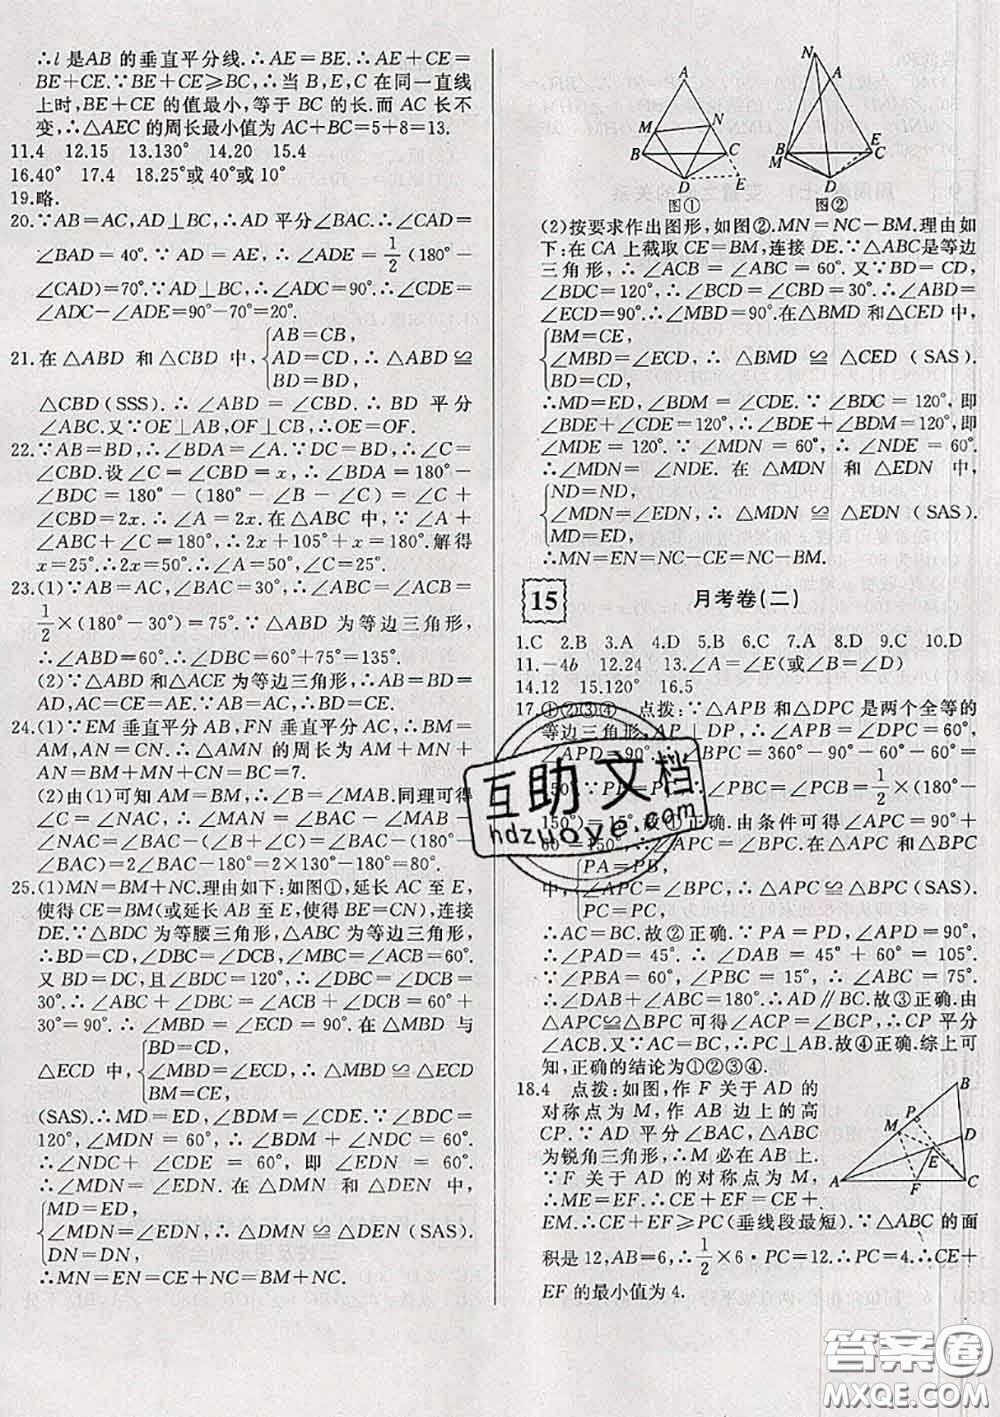 ∴l是AB的垂直平分线.∴AE=BE.∴AE+CE=
BE+CE.∵BE+CE≥BC,∴当B,E,C在同一直线
上时,BE+CE的值最小,等于BC的长.而AC长不
变,∴△AEC的周长最小值为AC+BC=5+8=13.
11.4 12.15 13.130° 14.20 15.4
16.40° 17.4 18.25°或40°或10°
19.略.
20.∵AB=AC,AD⊥BC,∴AD平分∠BAC.∴∠CAD=
∠BAD=40°.∵AD=AE,∴∠ADE=1/2(180°-
∠CAD)=70°.∵AD⊥BC,∴∠ADC=90°.∴∠CDE=
∠ADC-∠ADE=90°-70°=20°.
21.在△ABD和△CBD中,{AB=CB, AD=CD, BD=BD, ∴△ABD≌
△CBD(SSS).∴∠ABD=∠CBD.∴BD平分
∠ABC.又∵OE⊥AB,OF⊥CB,∴OE=OF.
22.∵AB=BD,∴∠BDA=∠A.∵DC=BD,∴∠C=
∠CBD.设∠C=∠CBD=x,∴∠BDA=180°-
∠BDC=180°-(180°-∠B-∠C)=∠C+
∠CBD=2x.∴∠A=2x.在△ABC中,∵∠A+
∠ABC+∠C=180°,∴2x+105°+x=180°.解得
x=25°.∴2x=50°.∴∠A=50°,∠C=25°.
23.(1)∵AB=AC,∠BAC=30°,∴∠ABC=∠ACB=
1/2×(180°-30°)=75°.∵△ABD为等边三角形,
∴∠ABD=60°.∴∠DBC=60°+75°=135°.
(2)∵△ABD和△ACE为等边三角形,∴AB=BD=
AD,AC=CE=AE.∵AB=AC,∴BD=CE.
24.(1)∵EM垂直平分AB,FN垂直平分AC,∴BM=
AM,AN=CN.∴△AMN的周长为AM+MN+
AN=BM+MN+CN=BC=7.
(2)由(1)可知AM=BM,∴∠B=∠MAB.同理可得
∠C=∠NAC,∴∠MAN=∠BAC-∠MAB-
∠NAC=∠BAC-(∠B+∠C)=∠BAC-(180°-
∠BAC)=2∠BAC-180°=2×130°-180°=80°.
25.(1)MN=BM+NC.理由如下:如图①,延长AC至E,
使得CE=BM(或延长AB至E,使得BE=CN),连接
DE.∵△BDC为等腰三角形,△ABC为等边三角形,
∴BD=CD,∠DBC=∠DCB,∠MBC=∠ACB=60°.
又BD=DC,且∠BDC=120°,∴∠DBC=∠DCB=30°.
∴∠ABC+∠DBC=∠ACB+∠DCB=60°+
30°=90°.∴∠MBD=∠ECD=90°.在△MBD与
△ECD中,{BD=CD, ∠MBD=∠ECD, BM=CE, ∴△MBD≌△ECD
(SAS).∴MD=ED,∠BDM=∠CDE.∵∠BDC=
120°,∠MDN=60°,∴∠BDM+∠NDC=60°.
∴∠NDC+∠CDE=60°,即∠EDN=60°.
∴∠MDN=∠EDN.在△DMN和△EDN中,
{MD=ED, ∠MDN=∠EDN, DN=DN, ∴△DMN≌△EDN(SAS).
∴MN=EN=CE+NC=BM+NC.
A M N B C D E 图①
N A M B C D E 图②
(2)按要求作出图形,如图②.MN=NC-BM.理由如
下:在CA上截取CE=BM,连接DE.∵△ABC是等边
三角形,∴∠ACB=∠ABC=60°.又∵BD=CD,
∠BDC=120°,∴∠BCD=∠CBD=30°.∴∠MBD=
∠ECD=90°-90°=90°.在△BMD和△CED中,
{BM=CE, ∠MBD=∠ECD, BD=CD, ∴△BMD≌△CED(SAS).
∴MD=ED,∠BDM=∠CDE.∵∠BDC=120°,即
∠BDE+∠CDE=120°,∴∠BDE+∠BDM=120°,即
∠MDE=120°.∵∠MDN=60°,∴∠NDE=60°.
∴∠MDN=∠NDE.在△MDN和△EDN中,
{ND=ND, ∠MDN=∠EDN, MD=ED, ∴△MDN≌△EDN(SAS).
∴MN=EN=NC-CE=NC-BM.
15 月考卷(二)
1.C 2.B 3.A 4.D 5.B 6.C 7.A 8.D 9.C 10.D
11.-4b 12.24 13.∠A=∠E(或∠B=∠D)
14.12 15.120° 16.5
17.①②③④ 点拨:∵△APB和△DPC是两个全等的
等边三角形,AP⊥DP,∴∠APB=∠DPC=60°,
∠APD=90°.∴∠BPC=360°-90°-60°-60°=
150°.∵PB=PC,∴∠PBC=∠PCB=1/2×(180°-
150°)=15°.故①正确.由条件可得∠APC=90°+
60°=150°,∴∠APC=∠BPC.在△APC和△BPC
中,{PA=PB, ∠APC=∠BPC, PC=PC, ∴△APC≌△BPC(SAS).
∴AC=BC.故②正确.∵PA=PD,∠APD=90°,
∴∠PAD=45°.∴∠DAB=45°+60°=105°.
∵∠PBA=60°,∠PBC=15°,∴∠ABC=75°.
∴∠DAB+∠ABC=180°.∴AD∥BC.故③正确.由
△APC≌△BPC可得∠ACP=∠BCP,∴CP平分
∠ACB.又∵AC=BC,∴PC⊥AB.故④正确.综上可
知,正确的结论为①②③④.
18.4 点拨:如图,作F关于AD的
对称点为M,作AB边上的高
CP.∵AD平分∠BAC,△ABC
为锐角三角形,∴M必在AB上.
∵F关于AD的对称点为M,
∴ME=EF.∴CE+EF=CE+
EM.∴CE+EF≥PC(垂线段最短).∵△ABC的面
积是12,AB=6,∴1/2×6·PC=12.∴PC=4.∴CE+
EF的最小值为4.
B P M D E A F C
互助文档
hdzuoye.com
答案圈
MXQE.COM